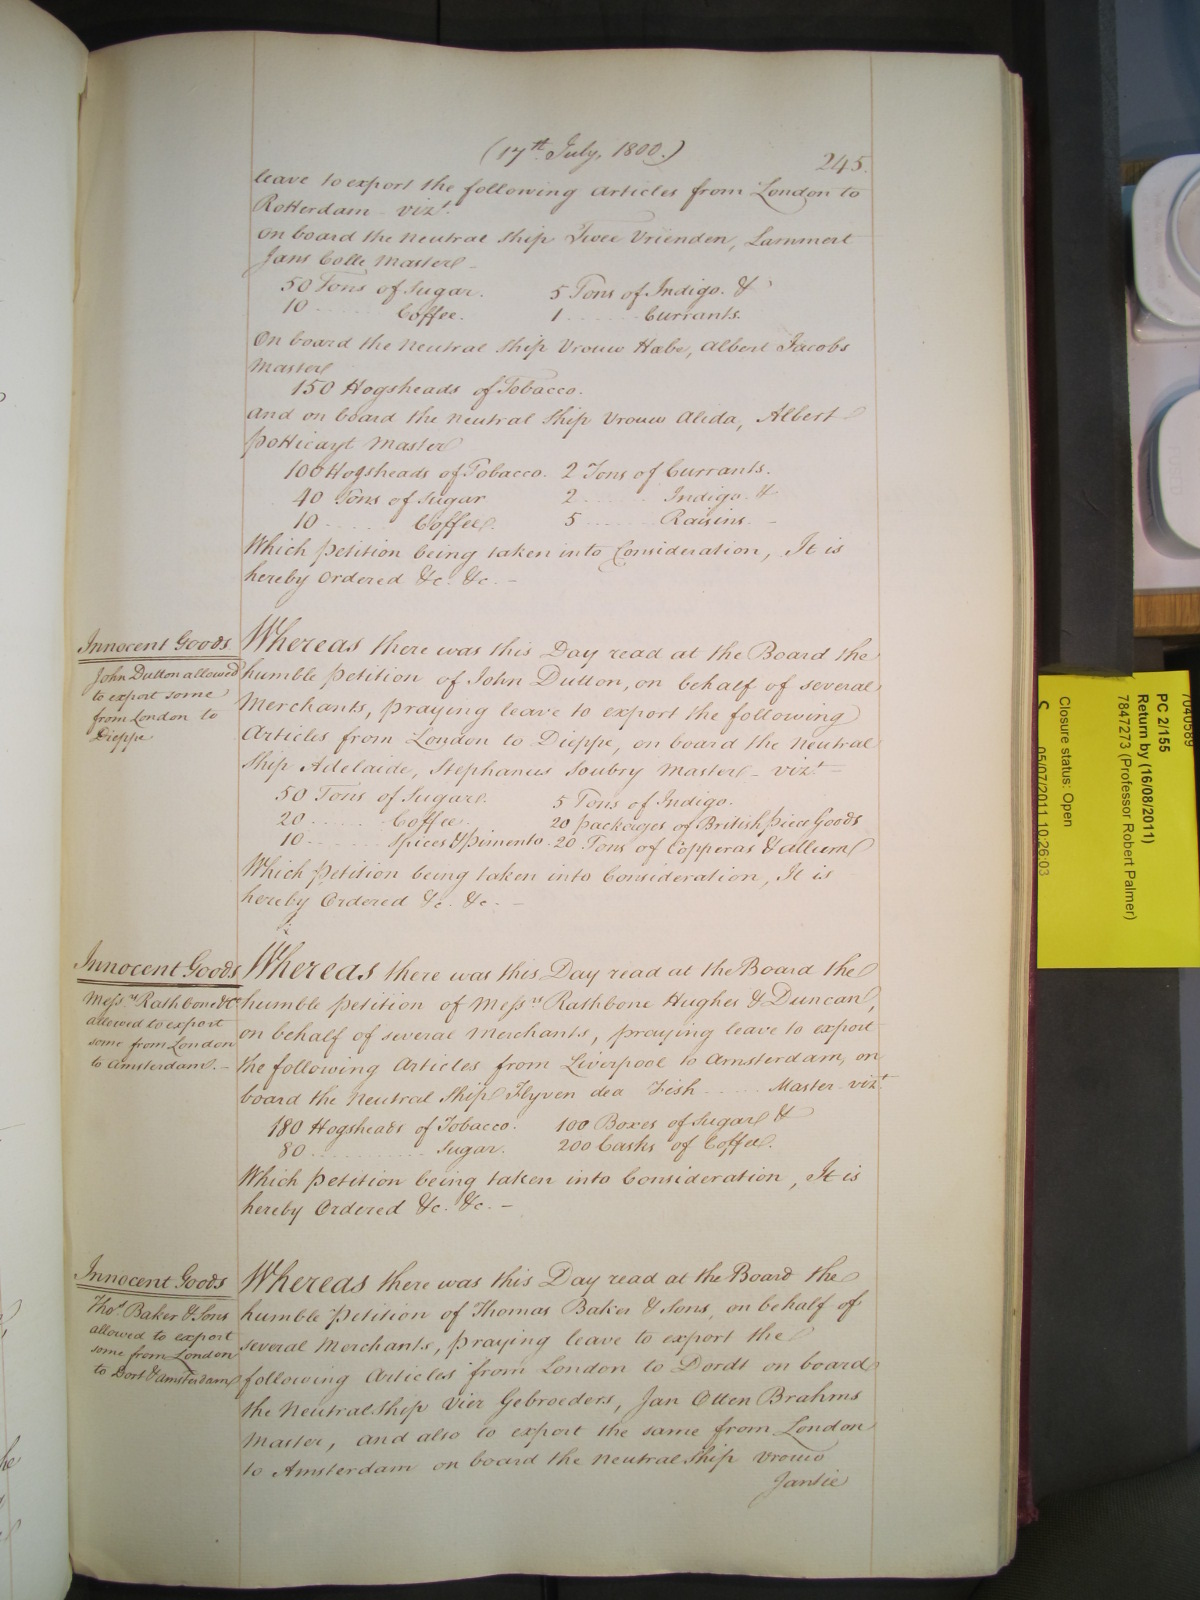 (17th July, 1800.)
245.
leave to export the following articles from London to
Rotterdam vizt.
on board the Neutral Ship Twee Vrienden, Lammert
Jans Colle Master
50 Tons of Sugar. 5 Tons of Indigo. &
10 ...... Coffee. 1 ...... Currants.
On board the Neutral Ship Vrouw Hæbe, Albert Jacobs
Master
150 Hogsheads of Tobacco.
and on board the Neutral Ship Vrouw Alida, Albert
Master
100 Hogsheads of Tobacco. 2 Tons of Currants.
40 Tons of Sugar 2 ...... Indigo. &
10 ...... Coffee. 5 ...... Raisins. -
Which Petition being taken into Consideration, It is
hereby Ordered &c. &c. -
Innocent Goods
John Dutton allowed
to export some
from London to
Dieppe
Whereas there was this Day read at the Board the
humble Petition of John Dutton, on behalf of several
Merchants, praying leave to export the following
Articles from London to Dieppe, on board the Neutral
Ship Adelaide, Stephanus Soubry Master - vizt.
50 Tons of Sugar. 5 Tons of Indigo.
20 ...... Coffee. 20 packages of British piece Goods
10 ...... Spices & Pimento. 20 Tons of Copperas & allum
Which Petition being taken into Consideration, It is
hereby Ordered &c. &c. -
Innocent Goods
Messrs Rathbone &c
allowed to export
some from London
to Amsterdam. -
Whereas there was this Day read at the Board the
humble Petition of Messrs Rathbone Hughes & Duncan,
on behalf of several Merchants, praying leave to export
the following Articles from Liverpool to Amsterdam, on
board the Neutral Ship Flyven dea Fish ..... Master vizt
180 Hogsheads of Tobacco. 100 Boxes of Sugar &
80 ...... Sugar. 200 Casks of Coffee.
Which Petition being taken into Consideration, It is
hereby Ordered &c. &c. -
Innocent Goods
Thos. Baker & Sons
allowed to export
some from London
to Dort & Amsterdam
Whereas there was this Day read at the Board the
humble Petition of Thomas Baker & Sons, on behalf of
several Merchants, praying leave to export the
following Articles from London to Dordt on board
the Neutral Ship Vier Gebroeders, Jan Otten Brahms
Master, and also to export the same from London
to Amsterdam on board the Neutral Ship Vrouw
Jantie
7040589
PC 2/155
Return by (16/08/2011)
7847273 (Professor Robert Palmer)
Closure status: Open
05/07/2011 10:26:03